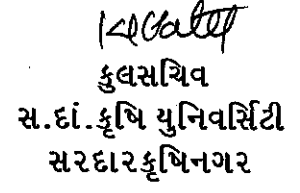 કુલસચિવ
સ.દાં.કૃષિ યુનિવર્સિટી
સરદારકૃષિનગર